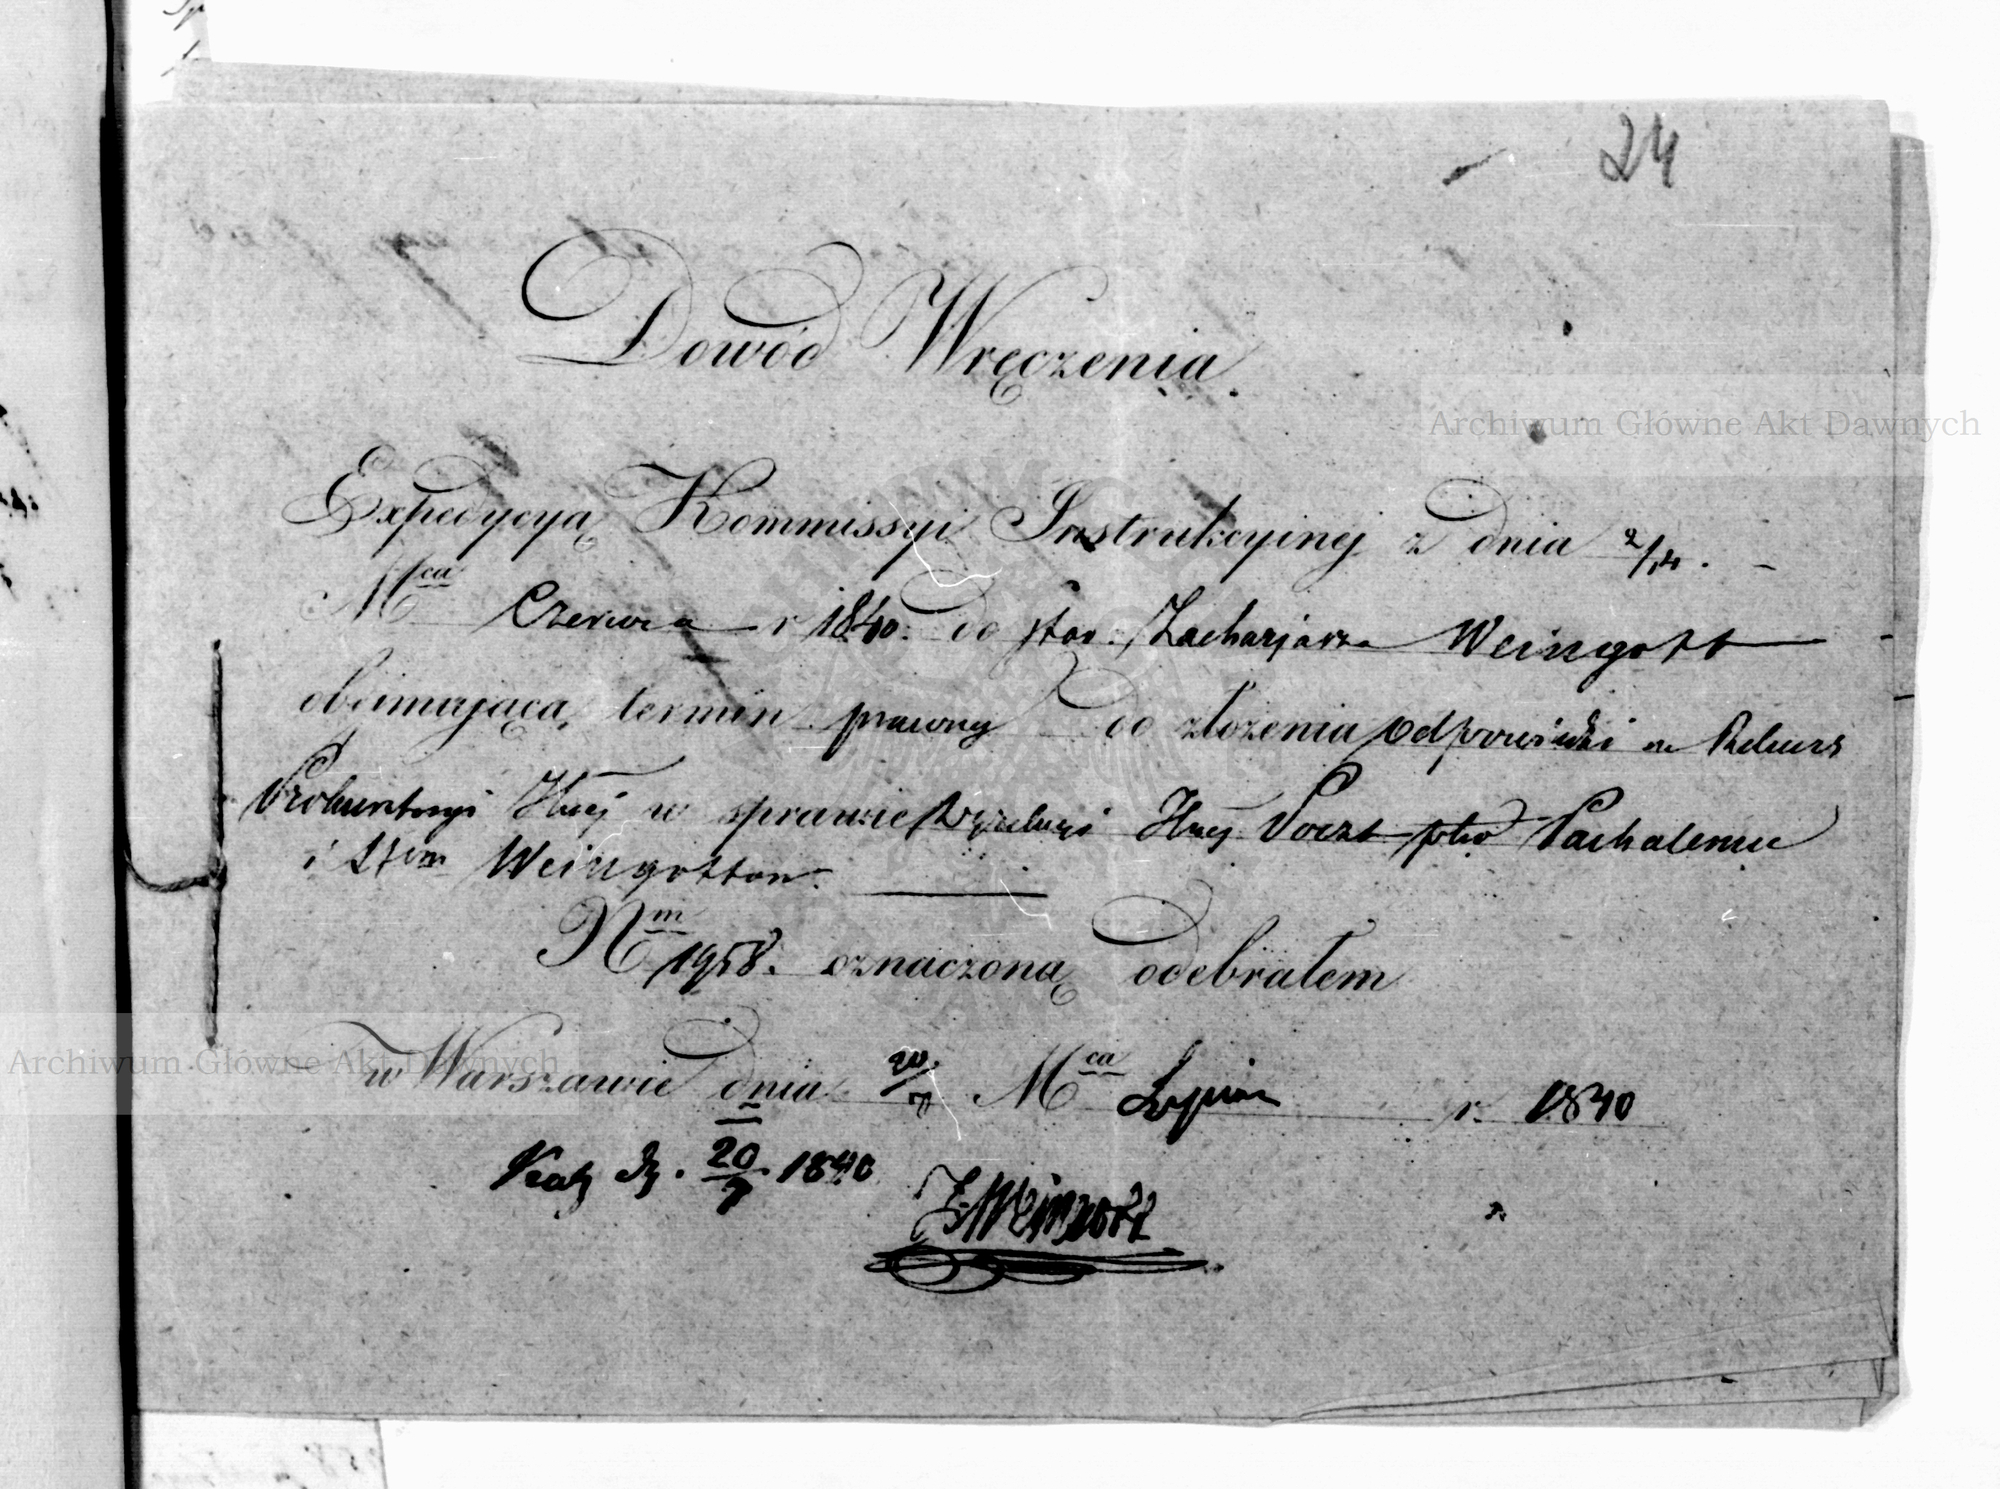 24
Dowód Wręczenia.
Expedycyą Kommissyi Instrukcyinej z dnia 2/14.
Mca Czerwca r 1840. do star. Zacharjasza Weingott
obejmującą termin prawny do złożenia odpowiedzi na Rekurs
Prokuratoryi w sprawie Poczt pko Pachalemu
i Weingottom.
Nm 1958. oznaczoną odebrałem
w Warszawie dnia 20/7 Mca Lipca r. 1840
d. 20/7 1840
Z. Weingott
Archiwum Główne Akt Dawnych
Archiwum Główne Akt Dawnych